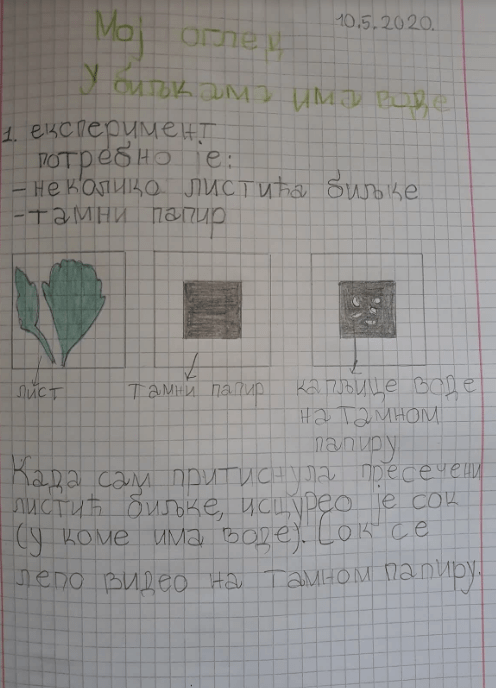 10.5.2020.
Мој оглед
У биљкама има воде
1. експеримент
потребно је:
-неколико листића биљке
-тамни папир
лист
тамни папир
капљице воде
на тамном
папиру
Када сам притиснула пресечени
листић биљке, исцурео је сок
(у коме има воде). Сок се
лепо видео на тамном папиру.